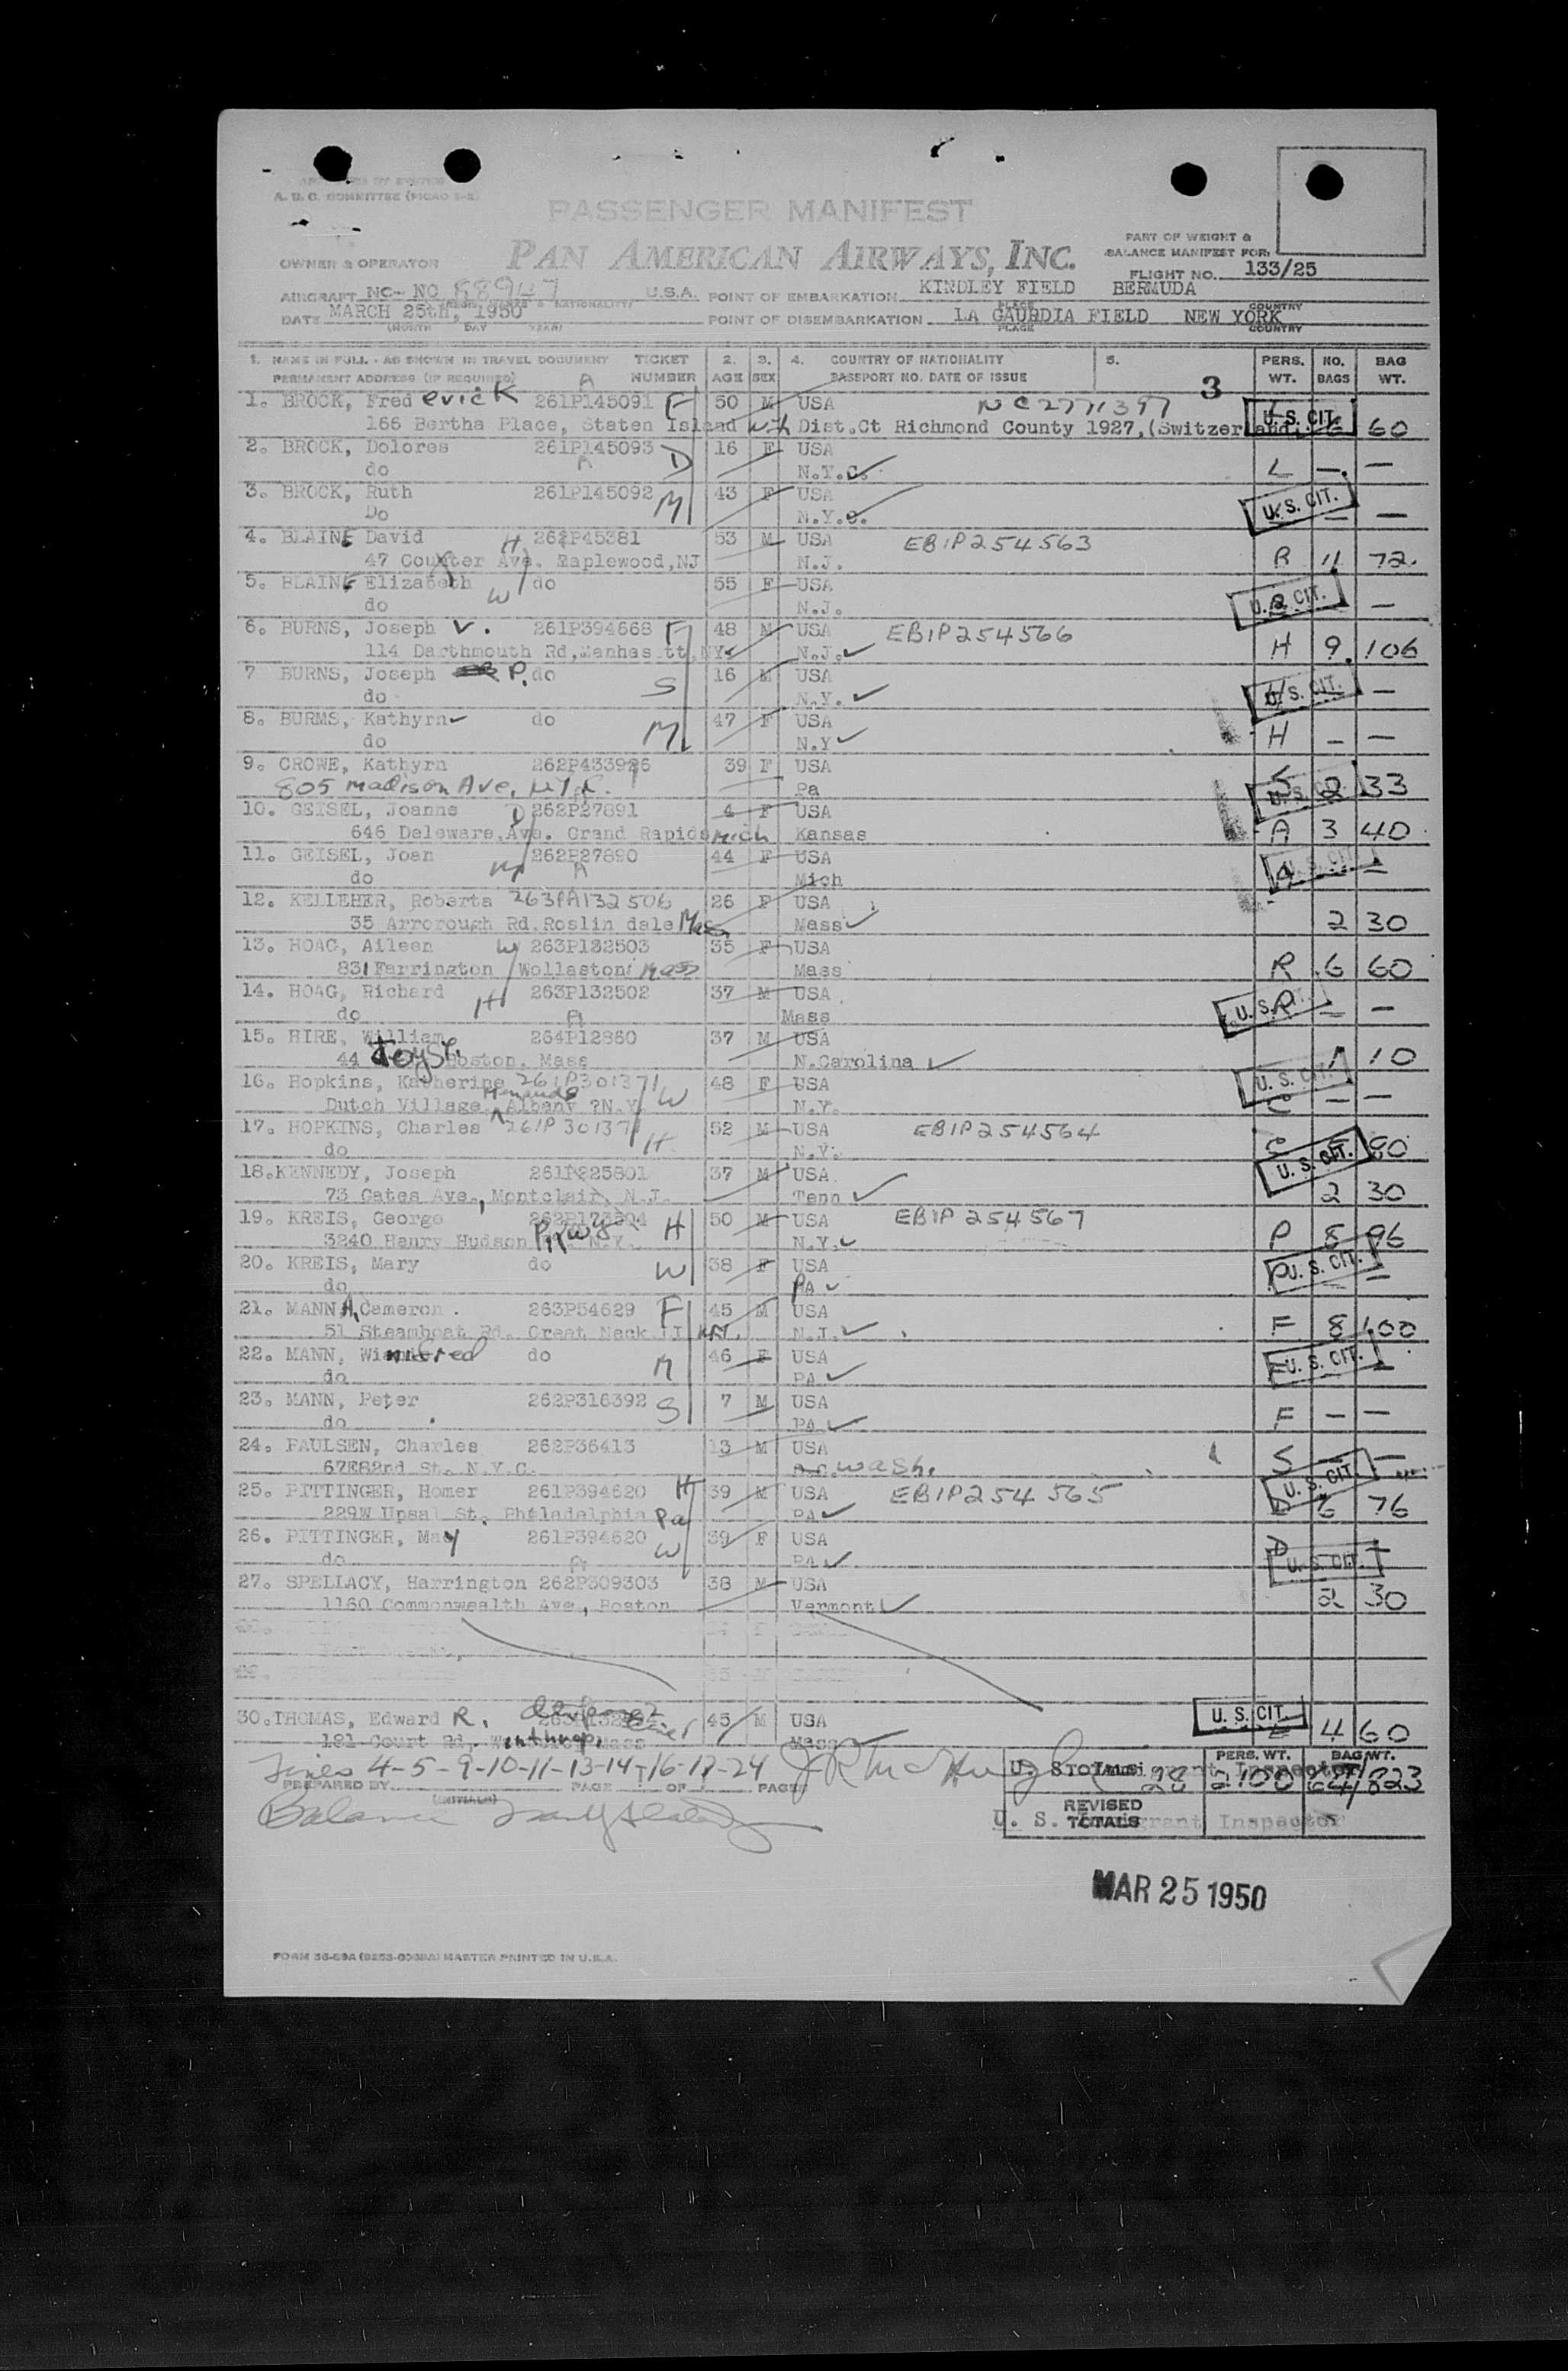 A. D. C. COMMITTEE (PICAO
PASSENGER MANIFEST
PAN AMERICAN AIRWAYS, INC.
PART OF WEIGHT &
BALANCE MANIFEST FOR:
OWNER & OPERATOR
FLIGHT NO. 133/25
AIRCRAFT NC- NC 88947 U.S.A. POINT OF EMBARKATION KINDLEY FIELD BERMUDA
PLACE COUNTRY
DATE MARCH 25th, 1950 POINT OF DISEMBARKATION LA GAURDIA FIELD NEW YORK
(MONTH DAY YEAR) PLACE COUNTRY
1. NAME IN FULL - AS SHOWN IN TRAVEL DOCUMENT TICKET 2. 3. 4. COUNTRY OF NATIONALITY 5. PERS. NO. BAG
PERMANENT ADDRESS (IF REQUIRED) NUMBER AGE SEX PASSPORT NO. DATE OF ISSUE 3 WT. BAGS WT.
1. BROCK, Frederick 261P145091 F 50 M USA NC2771397 U. S. CIT.
166 Bertha Place, Staten Island Dist.Ct Richmond County 1927,(Switzerland 6 60
2. BROCK, Dolores 261P145093 D 16 F USA
do N.Y.C. L — —
3. BROCK, Ruth 261P145092 M 43 F USA U. S. CIT.
Do N.Y.C. — —
4. BLAINE David H 262P45381 53 M USA EBIP254563
47 Ave. Maplewood,NJ N.J. R 11 72
5. BLAINE Elizabeth W do 55 F USA U. S. CIT.
do N.J. —
6. BURNS, Joseph V. 261P394668 F 48 M USA EBIP254566
114 Darthmouth Rd,Manhas tt,NY N.J. H 9 106
7 BURNS, Joseph P. do S 16 M USA U. S. CIT.
do N.Y. H — —
8. BURMS, Kathyrn do M 47 F USA
do N.Y H — —
9. CROWE, Kathyrn 262P433926 39 F USA
805 Madison Ave, N.Y.C. Pa U. S. CIT. 2 33
10. GEISEL, Joanne D 262P27891 4 F USA
646 Deleware,Ave. Grand Rapids Mich Kansas A 3 40
11. GEISEL, Joan M 262P27890 44 F USA U. S. CIT.
do Mich A — —
12. KELLEHER, Roberta 263PA132506 26 F USA
35 Arrorough Rd,Roslin dale Mass Mass 2 30
13. HOAG, Aileen W 263P132503 35 F USA
831 Farrington Wollaston Mass Mass R 6 60
14. HOAG, Richard H 263P132502 37 M USA U. S. CIT.
do Mass R — —
15. HIRE, William 264P12860 37 M USA
44 Joy St. Boston, Mass N.Carolina 1 10
16. Hopkins, Katherine 261P301371 W 48 F USA U. S. CIT.
Dutch Village, Menands Albany ?N.Y. N.Y. C — —
17. HOPKINS, Charles 261P301371 H 52 M USA EBIP254564
do N.Y. C 5 80
18.KENNEDY, Joseph 261P225801 37 M USA U. S. CIT.
73 Gates Ave., Montclair, N.J. Tenn 2 30
19. KREIS, George 262P173304 H 50 M USA EBIP254567
3240 Henry Hudson Pkwy N.Y. N.Y. P 8 96
20. KREIS, Mary do W 38 F USA U. S. CIT.
do PA P — —
21. MANN A. Cameron 263P54629 F 45 M USA
51 Steamboat Rd. Great Neck LI N.J. F 8 100
22. MANN, Winifred do M 46 F USA U. S. CIT.
do PA F —
23. MANN, Peter 262P316392 S 7 M USA
do PA F — —
24. PAULSEN, Charles 262P36413 13 M USA
67E82nd St. N.Y.C. Wash. S — —
25. PITTINGER, Homer 261P394620 H 39 M USA EBIP254565 U. S. CIT.
229W Upsal St. Philadelphia Pa PA D 6 76
26. PITTINGER, May 261P394620 W 39 F USA
do PA D — — U. S. CIT.
27. SPELLACY, Harrington 262P309303 38 M USA
1160 Commonwealth Ave., Boston Vermont 2 30
28.
29.
30.THOMAS, Edward R. 45 M USA U. S. CIT.
181 Court Rd. Winthrop, Mass Mass E 4 60
Lines 4-5-9-10-11-13-14-16-17-24
PREPARED BY (INITIALS) PAGE 1 OF 1 PAGES
U. S. Immigrant Inspector
TOTALS 28 PERS. WT. 2100 BAG WT. 64/823
REVISED TOTALS
U. S. Immigrant Inspector
MAR 25 1950
FORM MASTER PRINTED IN U.S.A.